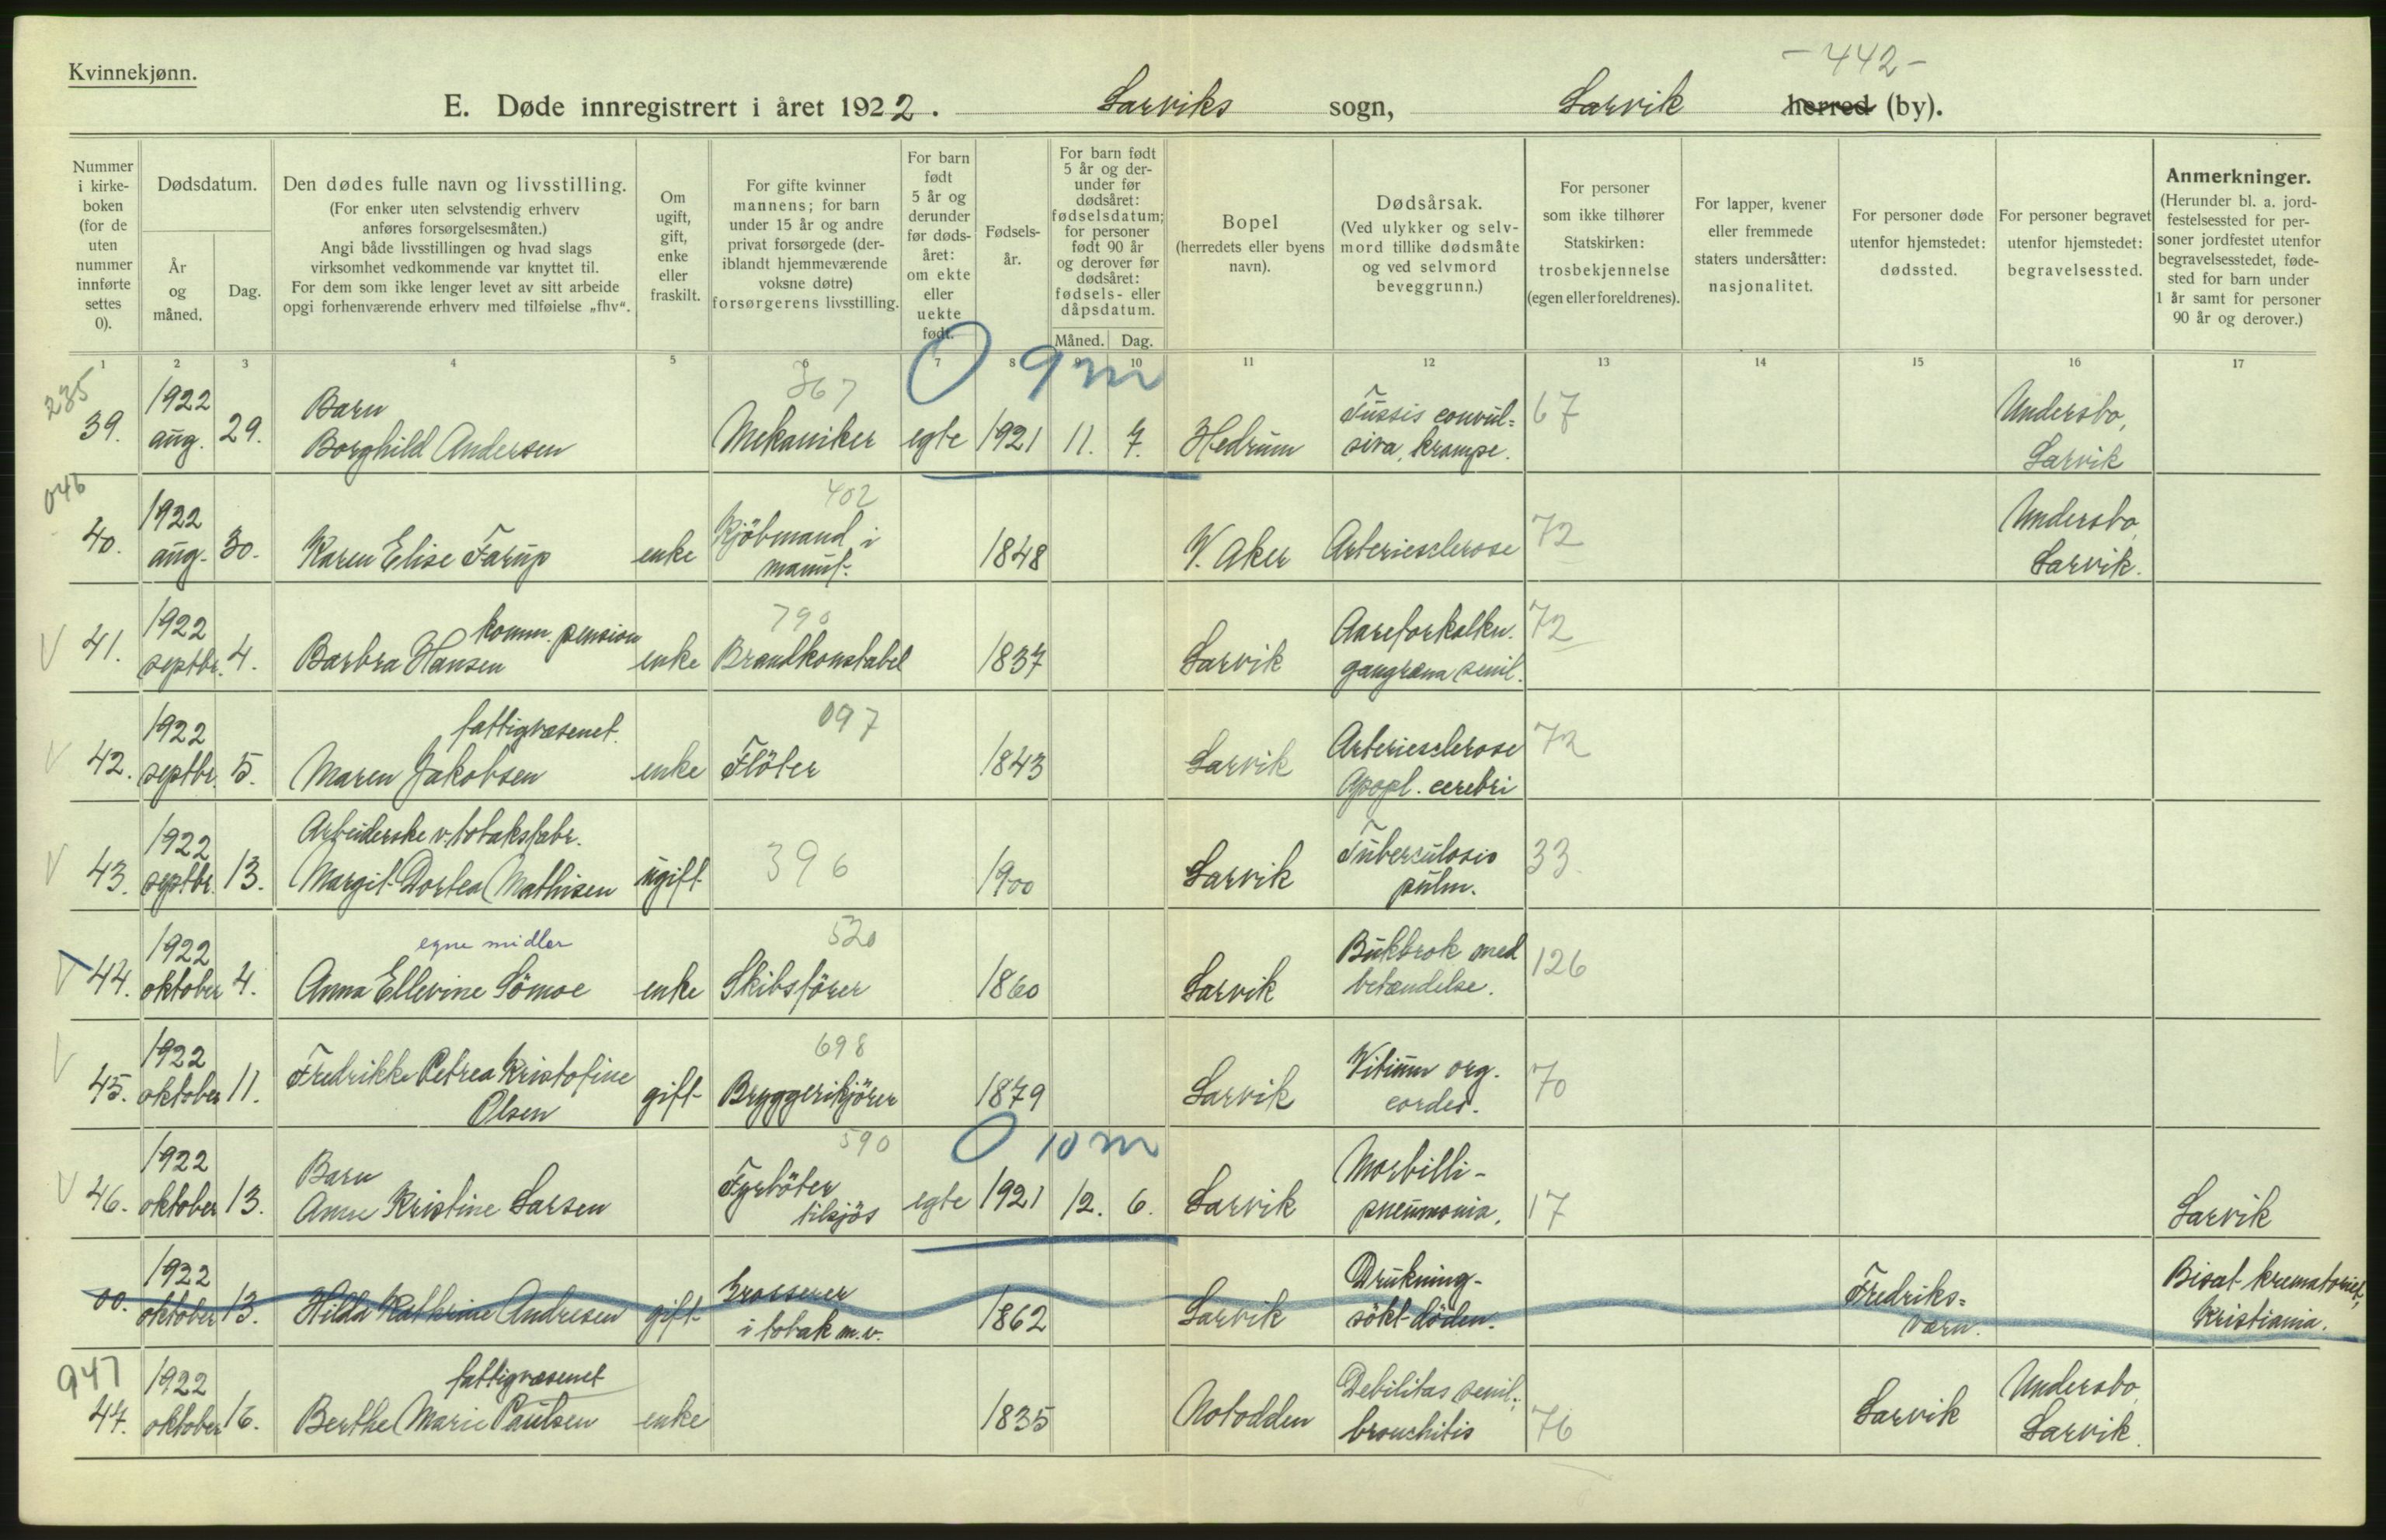 - 442 -
Kvinnekjønn.
E. Døde innregistrert i året 1922. Larviks sogn, Larvik herred (by).
Nummer i kirke- boken (for de uten nummer innførte settes 0).
Dødsdatum.
År og måned.
Dag.
Den dødes fulle navn og livsstilling.
(For enker uten selvstendig erhverv anføres forsørgelsesmåten.)
Angi både livsstillingen og hvad slags virksomhet vedkommende var knyttet til.
For dem som ikke lenger levet av sitt arbeide opgi forhenværende erhverv med tilføielse „fhv“.
Om ugift, gift, enke eller fraskilt.
For gifte kvinner mannens; for barn under 15 år og andre privat forsørgede (der- iblandt hjemmeværende voksne døtre) forsørgerens livsstilling.
For barn født 5 år og derunder før døds- året: om ekte eller uekte født.
Fødsels- år.
For barn født 5 år og der- under før dødsåret: fødselsdatum; for personer født 90 år og derover før dødsåret: fødsels- eller dåpsdatum.
Måned. Dag.
Bopel (herredets eller byens navn).
Dødsårsak.
(Ved ulykker og selv- mord tillike dødsmåte og ved selvmord beveggrunn.)
For personer som ikke tilhører Statskirken: trosbekjennelse (egen eller foreldrenes).
For lapper, kvener eller fremmede staters undersåtter: nasjonalitet.
For personer døde utenfor hjemstedet: dødssted.
For personer begravet utenfor hjemstedet: begravelsessted.
Anmerkninger.
(Herunder bl. a. jord- festelsessted for per- soner jordfestet utenfor begravelsesstedet, føde- sted for barn under 1 år samt for personer 90 år og derover.)
1 2 3 4 5 6 7 8 9 10 11 12 13 14 15 16 17
235 367 0 9 m
39. 1922 aug. 29. Barn Borghild Andersen Mekaniker egte 1921 11. 7. Hedrum Tussis convul= siva, krampe. 67 Undersbo, Larvik
046 402
40. 1922 aug. 30. Karen Elise Farup enke Kjöbmand i manuf. 1848 V. Aker Arteriesclerose 72 Undersbo, Larvik.
790
V 41. 1922 septbr. 4. komm. pension Barbra Hansen enke Brandkonstabel 1837 Larvik Aareforkalkn. gangræna senil. 72
097
V 42. 1922 septbr. 5. fattigvæsenet. Maren Jakobsen enke Flöter 1843 Larvik Arteriesclerose Apopl. cerebri 72
V 43. 1922 septbr. 13. Arbeiderske v. tobaksfabr. Margit Dortea Mathisen ugift 396 1900 Larvik Tuberculosis pulm. 33
520
V 44. 1922 oktober 4. egne midler Anna Ellevine Lömoe enke Skibsförer 1860 Larvik Bukbrok med betændelse. 126
698
V 45. 1922 oktober 11. Fredrikke Petrea Kristofine Olsen gift Bryggerikjörer 1879 Larvik Vitium org. cordis. 70
590 0 10 m
V 46. 1922 oktober 13. Barn Anne Kristine Larsen Fyrböter tilsjös egte 1921 12. 6. Larvik Morbilli- pneumonia. 17 Larvik
00. 1922 oktober 13. Hilda Kathrine Andresen gift Grosserer i tobak m.v. 1862 Larvik Drukning- sökt döden. Fredriks= værn. Bisat krematoriet, Kristiania.
947
47. 1922 oktober 16. fattigvæsenet Berthe Marie Paulsen enke 1835 Notodden Debilitas senil; bronchitis 76 Larvik Undersbo, Larvik.